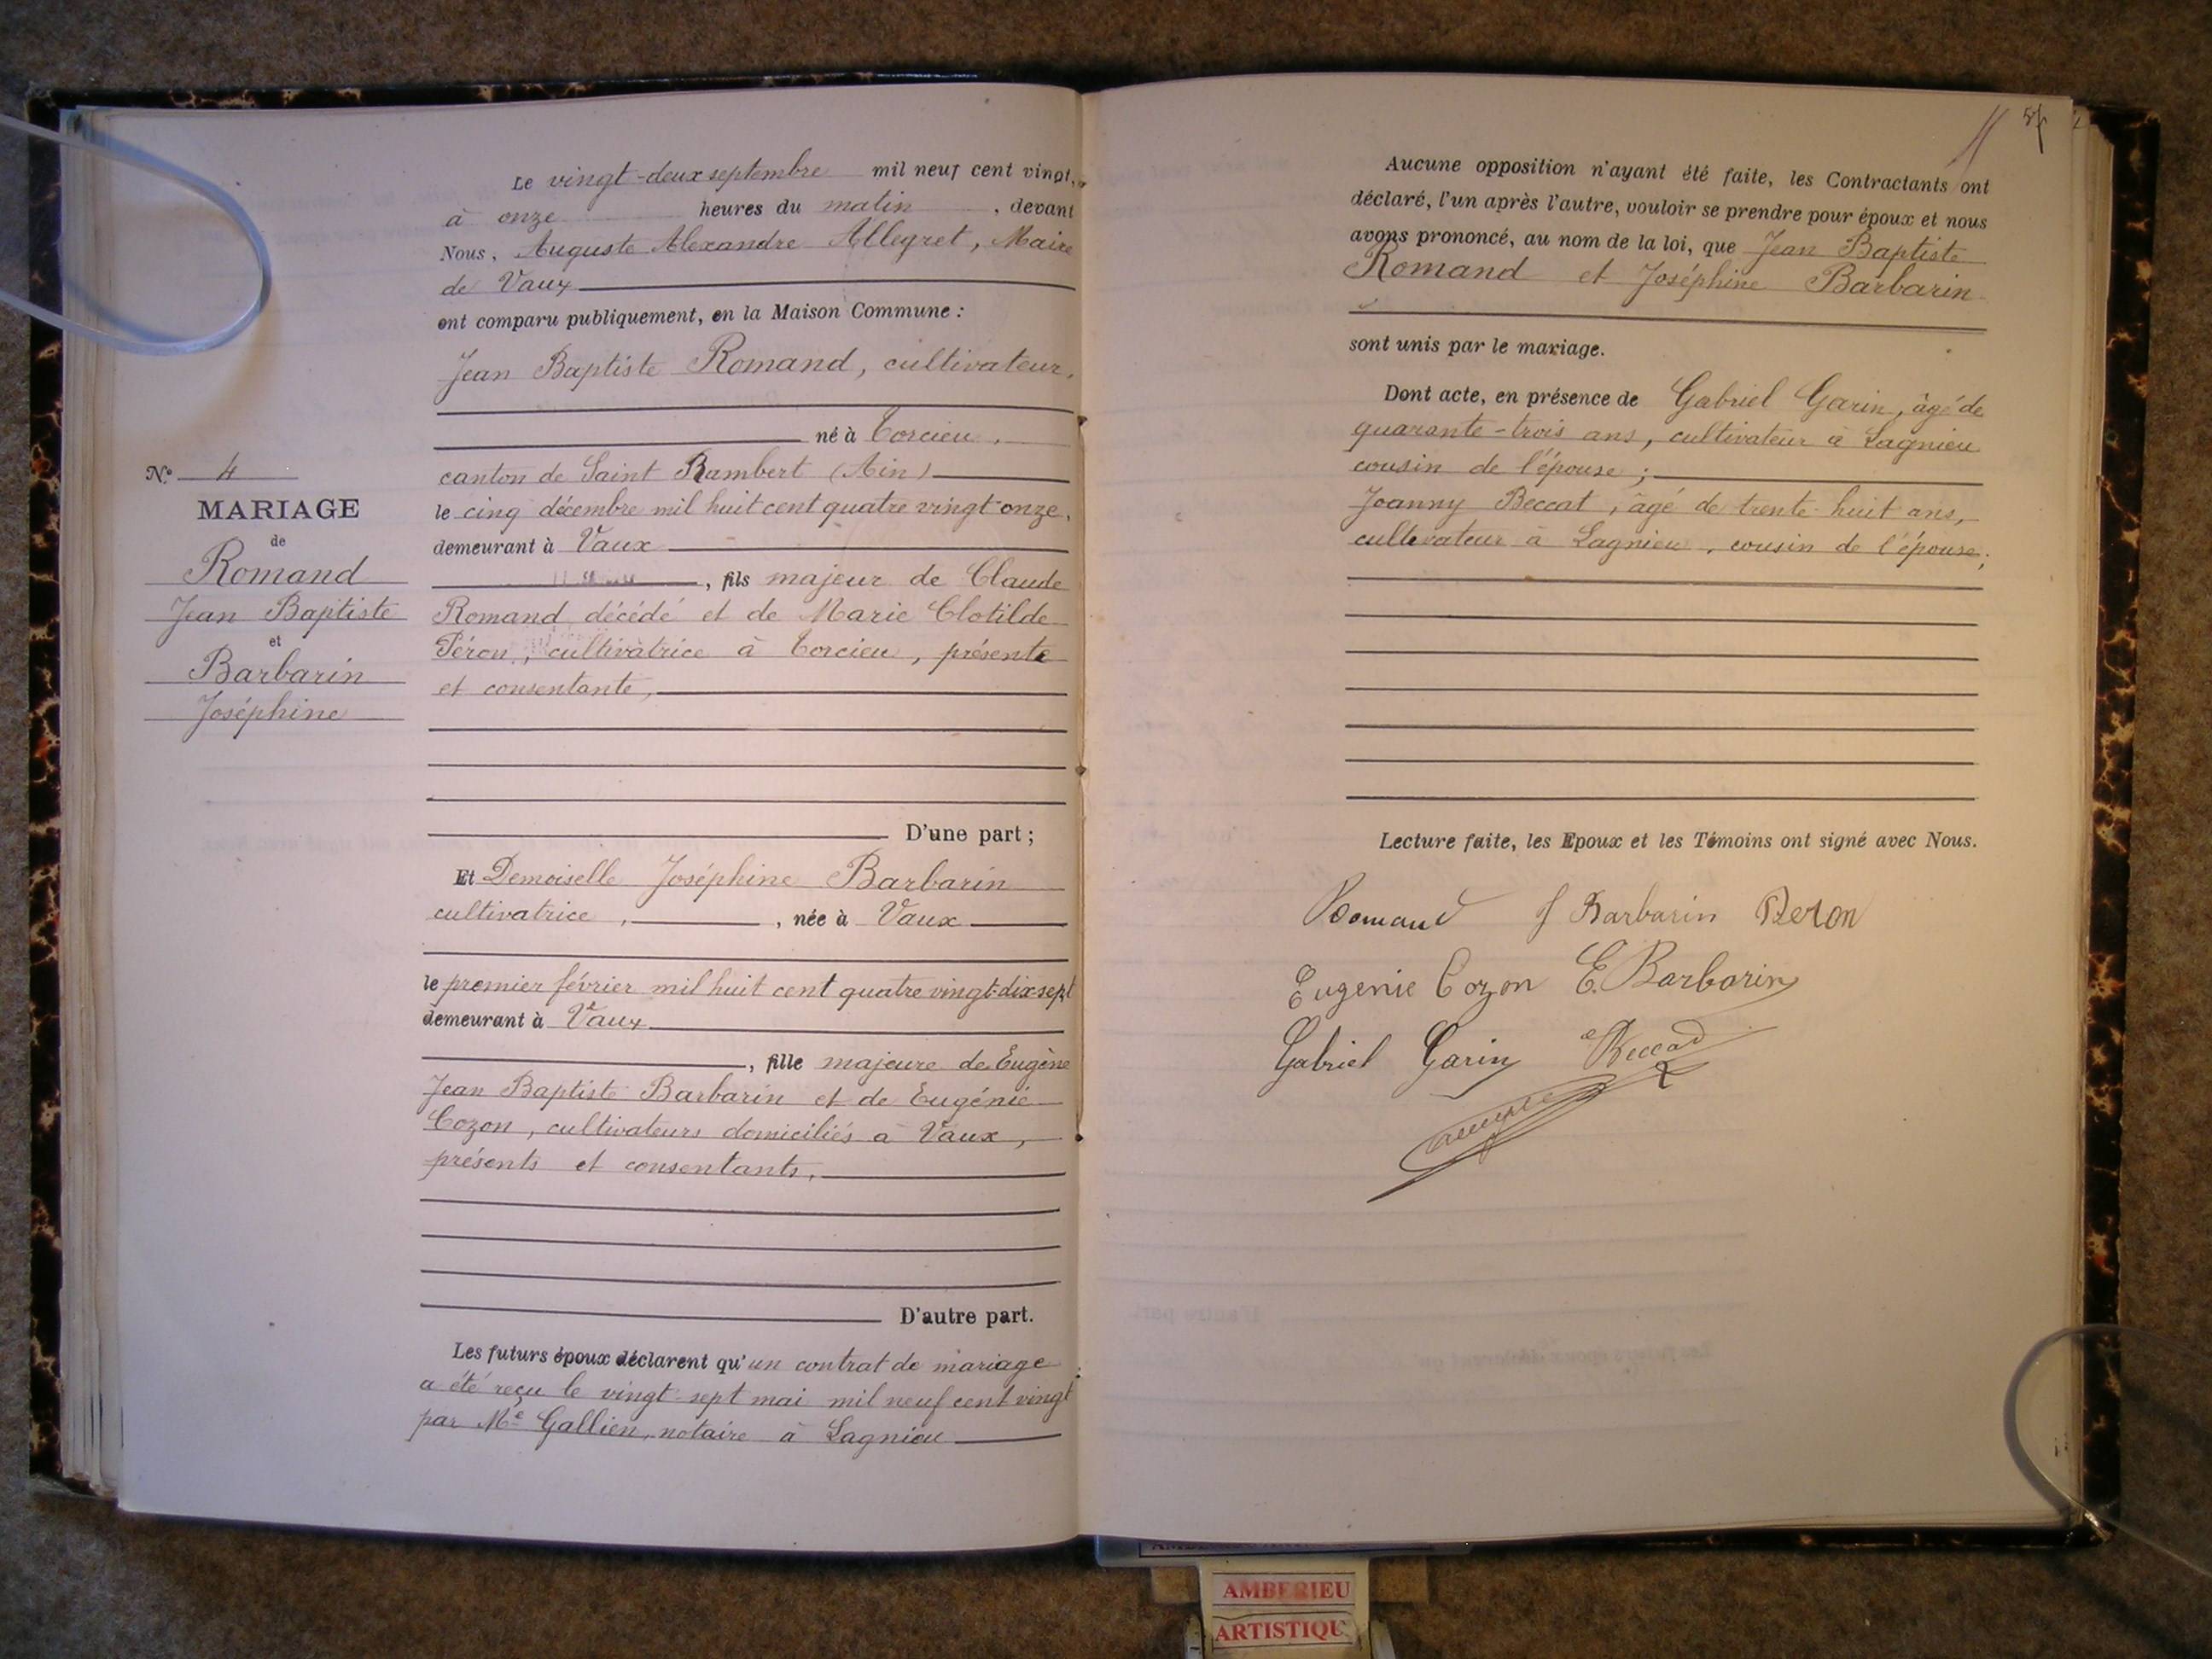 Le vingt-deux septembre mil neuf cent vingt,
à onze heures du matin, devant
Nous, Auguste Alexandre Allegret, Maire
de Vaux
ont comparu publiquement, en la Maison Commune :
Jean Baptiste Romand, cultivateur,
né à Torcieu,
canton de Saint Rambert (Ain)
le cinq décembre mil huit cent quatre vingt onze,
demeurant à Vaux
, fils majeur de Claude
Romand décédé et de Marie Clotilde
Péron, cultivatrice à Torcieu, présente
et consentante,
D'une part ;
N° 4
MARIAGE
de
Romand
Jean Baptiste
et
Barbarin
Joséphine
Et Demoiselle Joséphine Barbarin
cultivatrice, , née à Vaux
le premier février mil huit cent quatre vingt-dix-sept
demeurant à Vaux
, fille majeure de Eugène
Jean Baptiste Barbarin et de Eugénie
Cozon, cultivateurs domiciliés à Vaux,
présents et consentants,
D'autre part.
Les futurs époux déclarent qu'un contrat de mariage
a été reçu le vingt-sept mai mil neuf cent vingt
par Me Gallien, notaire à Lagnieu
Aucune opposition n'ayant été faite, les Contractants ont
déclaré, l'un après l'autre, vouloir se prendre pour époux et nous
avons prononcé, au nom de la loi, que Jean Baptiste
Romand et Joséphine Barbarin
sont unis par le mariage.
Dont acte, en présence de Gabriel Garin, âgé de
quarante-trois ans, cultivateur à Lagnieu
cousin de l'épouse ;
Joanny Beccat, âgé de trente-huit ans,
cultivateur à Lagnieu, cousin de l'épouse ;
Lecture faite, les Epoux et les Témoins ont signé avec Nous.
Romand J Barbarin Peron
Eugenie Cozon E. Barbarin
Gabriel Garin Beccad
AMBERIEU
ARTISTIQU